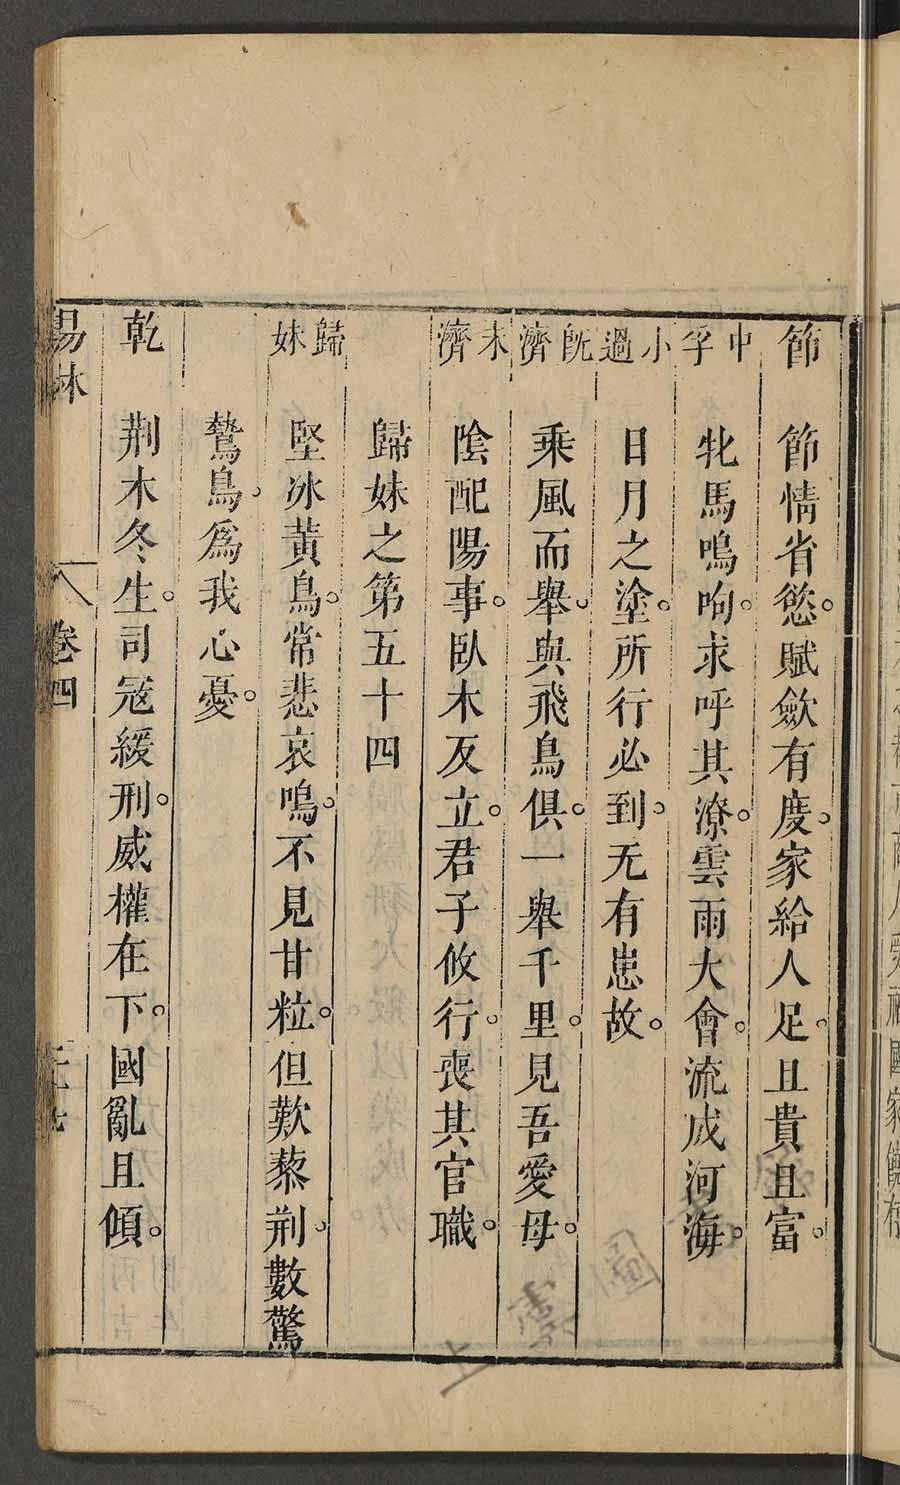 節　節情省慾。賦斂有度。家給人足。且貴且富。
中孚　牝馬鳴呴。求呼其潦。雲雨大會。流成河海。
小過　日月之塗。所行必到。无有患故。
既濟　乘風而舉。與飛鳥俱。一舉千里。見吾愛母。
未濟　陰配陽事。臥木反立。君子攸行。喪其官職。
歸妹之第五十四
歸妹　堅冰黃鳥。常悲哀鳴。不見甘粒。但歎藜荊。數驚
鷙鳥。爲我心憂。
乾　荆木冬生。司寇緩刑。威權在下。國亂且傾。
易林　卷四